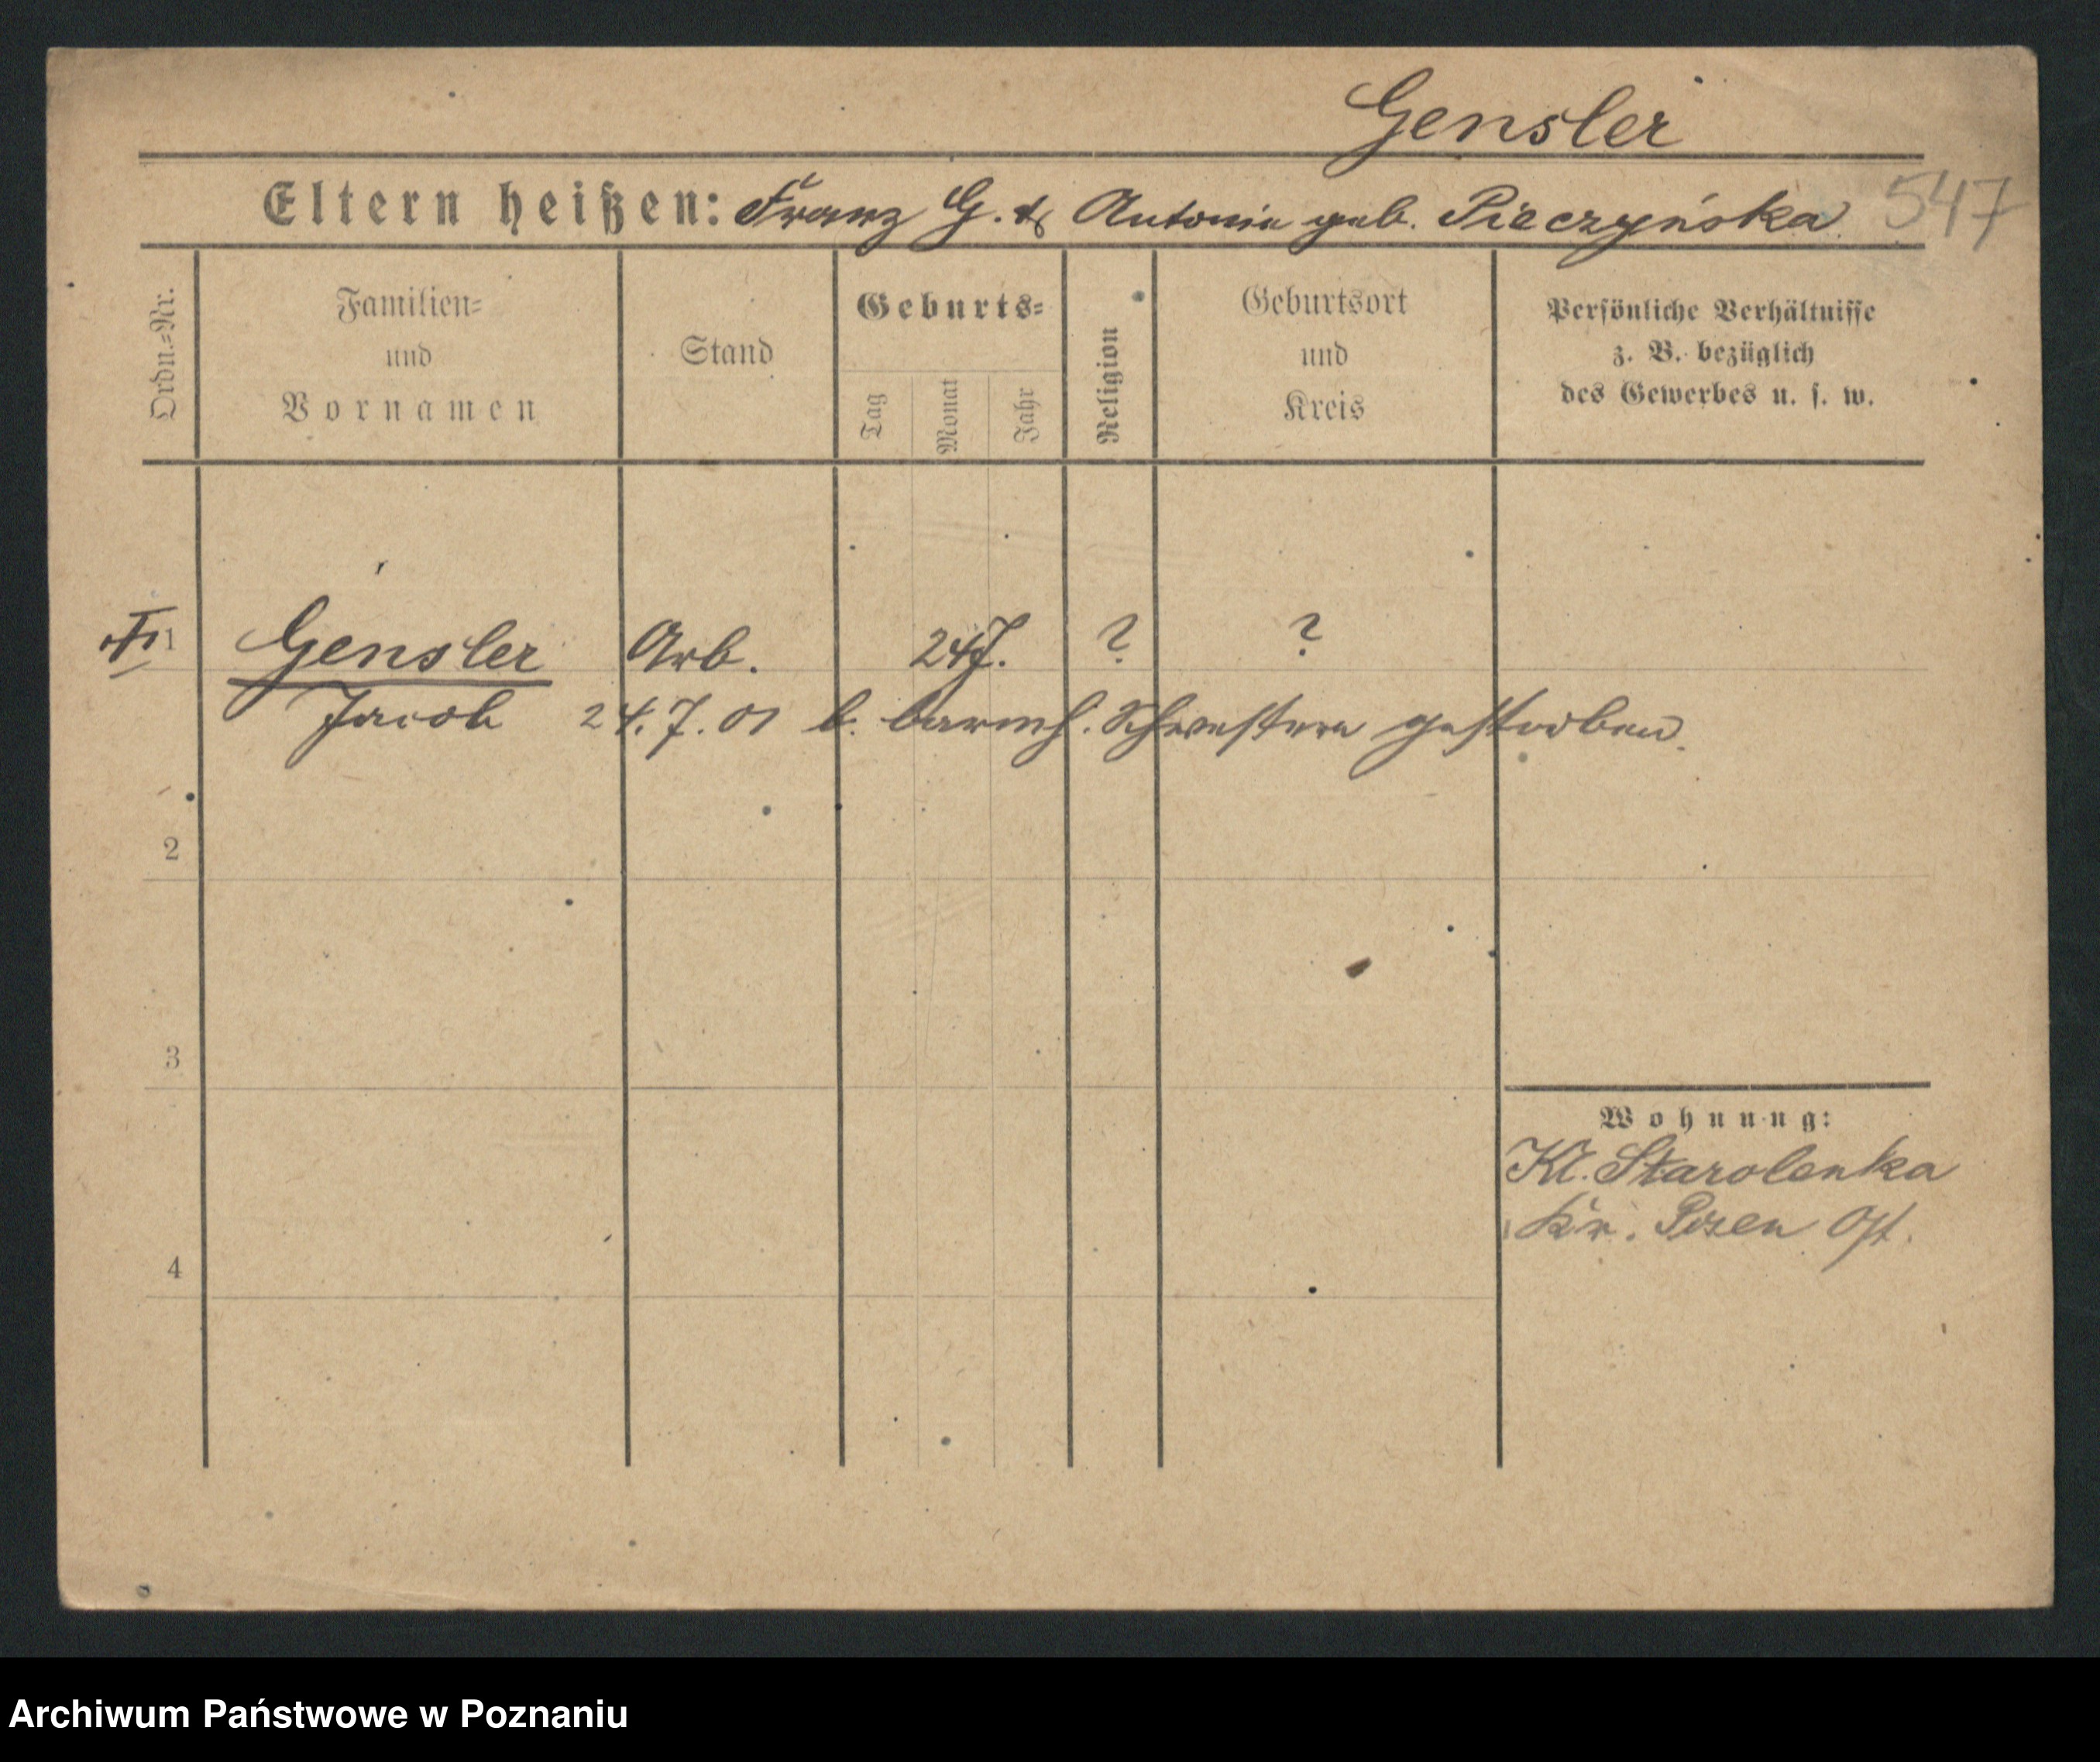 Gensler
Eltern heißen: Franz G. & Antonie geb. Pieczyńska 547
Ordn.-Nr.
Familien-
und
Vornamen
Stand
Geburts-
Tag
Monat
Jahr
Religion
Geburtsort
und
Kreis
Persönliche Verhältnisse
z. B. bezüglich
des Gewerbes u. s. w.
1 Gensler Arb. 24 J. ? ?
Jacob 24.7.01 b. barmh. Schwestern gestorben.
2
3
Wohnung:
Kl. Starolenka
Kr. Posen Ost.
4
Archiwum Państwowe w Poznaniu